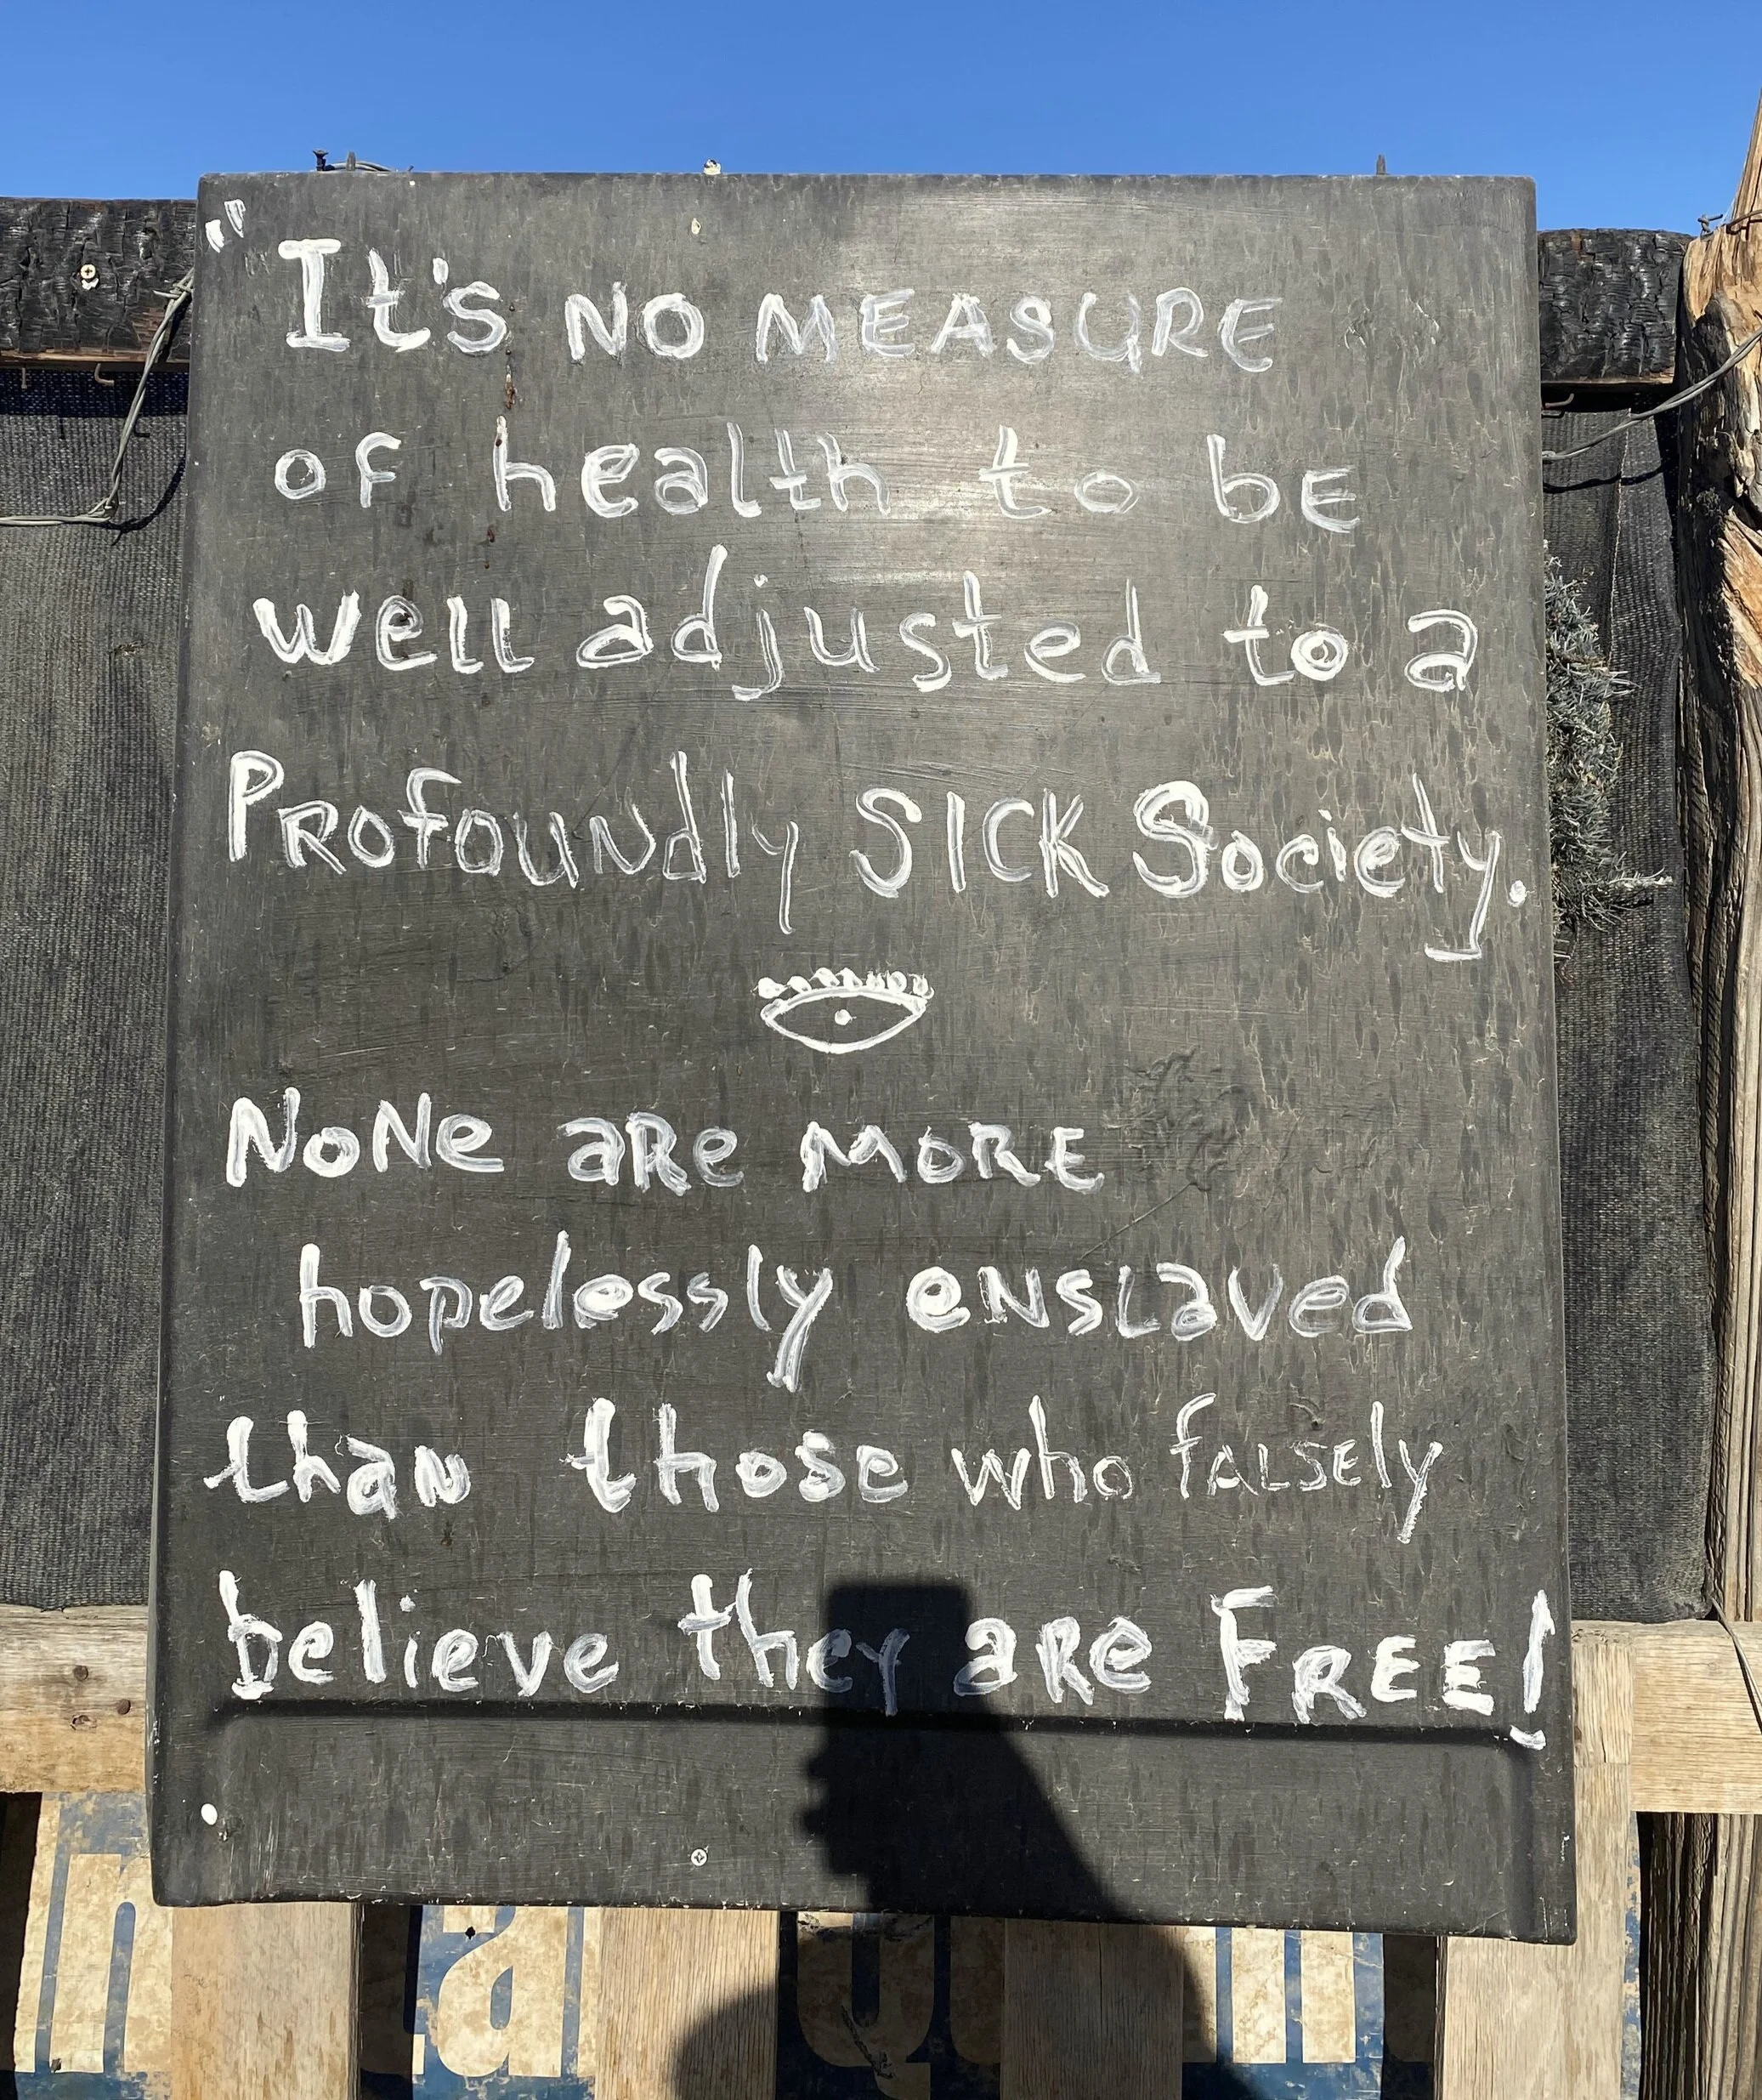 "It's NO MEASURE
of health to bE
well adjusted to a
PROfOUNdly SICK Society.
NoNe aRe MORE
hopelessly eNslaved
than those who fALSEly
believe they aRe FREE!